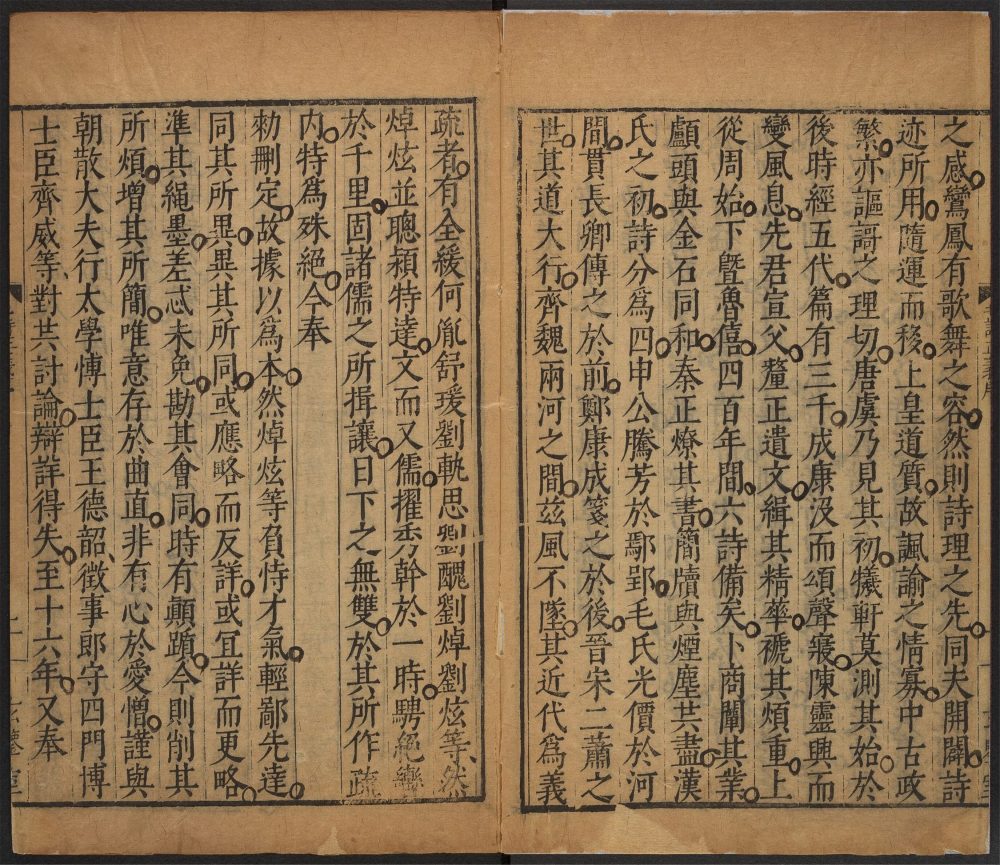 之感鸞鳳有歌舞之容然則詩理之先同夫開闢詩
迹所用隨運而移上皇道質故諷諭之情寡中古政
繁亦謳謌之理切唐虞乃見其初犧軒莫測其始於
後時經五代篇有三千成康沒而頌聲寢陳靈興而
變風息先君宣父釐正遺文緝其精華褫其煩重上
從周始下暨魯僖四百年間六詩備矣卜商闡其業
顱頭與金石同和秦正燎其書簡牘與煙塵共盡漢
氏之初詩分為四申公騰芳於鄢郢毛氏光價於河
間貫長卿傳之於前鄭康成箋之於後晉宋二蕭之
世其道大行齊魏兩河之間茲風不墜其近代為義
疏者有全緩何胤舒瑗劉軌思劉醜劉焯劉炫等然
焯炫並聰穎特達文而又儒擢秀幹於一時騁絕轡
於千里固諸儒之所揖讓日下之無雙於其所作疏
內特為殊絕今奉
勑刪定故據以為本然焯炫等負恃才氣輕鄙先達
同其所異異其所同或應略而反詳或宜詳而更略
準其繩墨差忒未免勘其會同時有顛躓今則削其
所煩增其所簡唯意存於曲直非有心於愛憎謹與
朝散大夫行太學博士臣王德韶徵事郎守四門博
士臣齊威等對共討論辯詳得失至十六年又奉